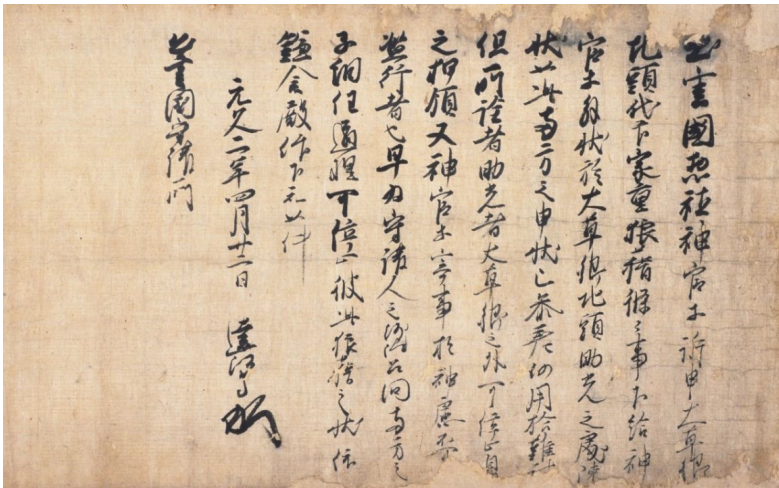 出雲國惣社神官等訴申大草郷
地頭代下家重狼藉條々事下給神
官等解状於大草郷地頭助光之處陳
状如此両方之申状已參差何用捨難
但所詮者助光者大草郷之外可停止自
之押領又神官等寄事於神慮不
濫行者也早為守護人之沙汰召問両方之
子細任道理可停止彼此狼藉之状依
鎌倉殿仰下知如件
元久二年四月廿二日 遠江守
出雲國守護所